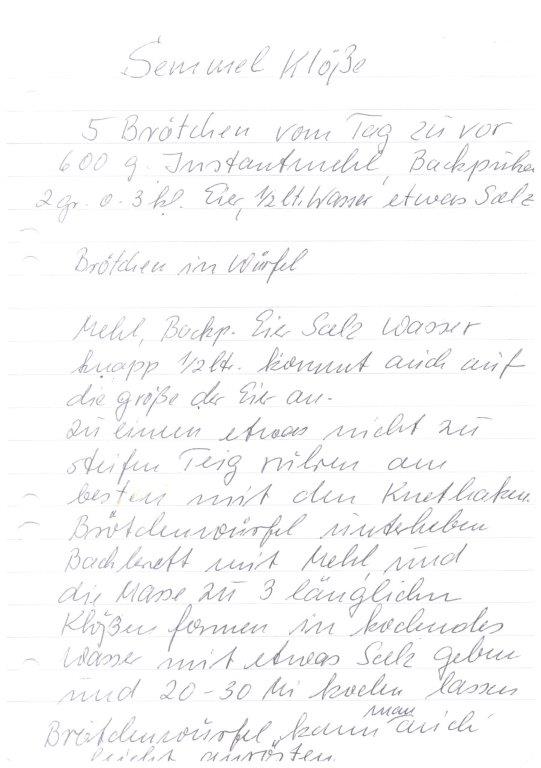 Semmel Klöße
5 Brötchen vom Tag zu vor
600 g. Instantmehl, Backpulver
2 gr. o. 3 kl. Eier, 1/2 lt. Wasser etwas Salz
Brötchen in Würfel
Mehl, Backp. Eier Salz Wasser
knapp 1/2 ltr. kommt auch auf
die größe der Eier an.
zu einen etwas nicht zu
steifen Teig rühren am
besten mit den Knethaken
Brötchenwürfel unterheben
Backbrett mit Mehl, und
die Masse zu 3 länglichen
Klößen formen in kochendes
Wasser mit etwas Salz geben
und 20-30 Mi kochen lassen
Brötchenwürfel kann man auch
leicht anrösten